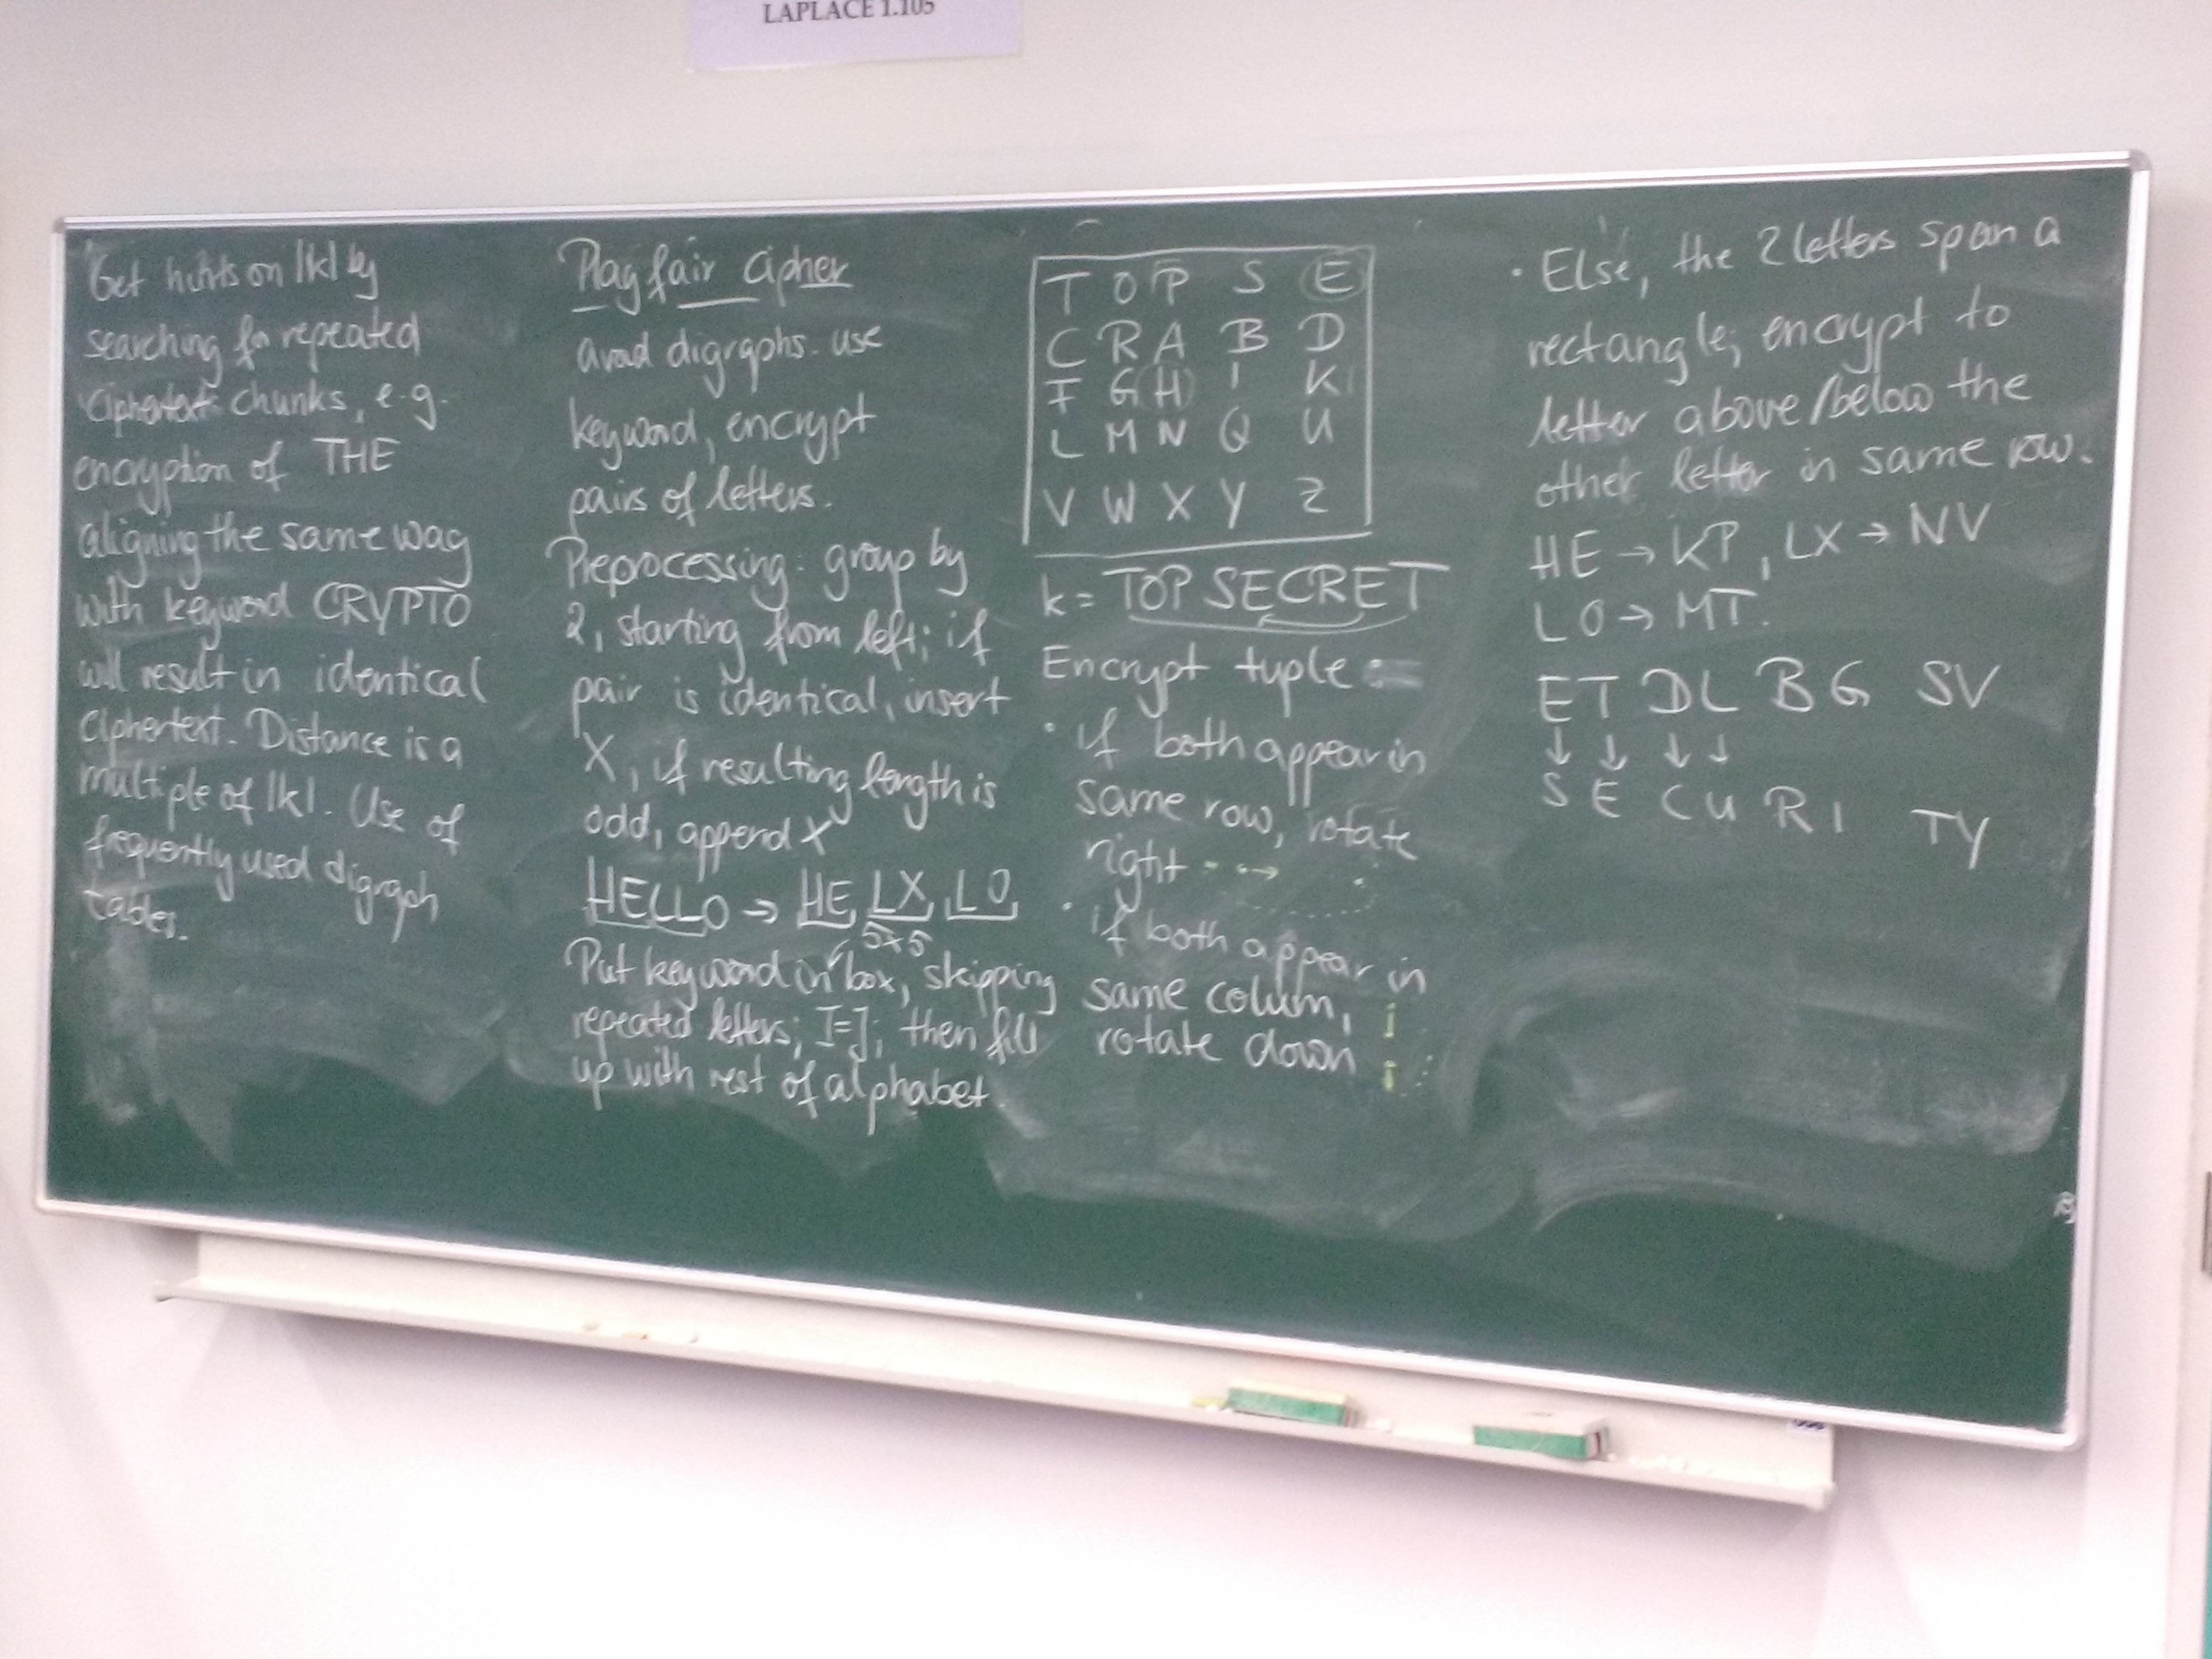 LAPLACE 1.105
Get hints on |k| by
searching for repeated
ciphertext chunks, e.g.
encryption of THE
aligning the same way
with keyword CRYPTO
will result in identical
ciphertext. Distance is a
multiple of |k|. Use of
frequently used digraph
tables.
Playfair Cipher
avoid digraphs. use
keyword, encrypt
pairs of letters.
Preprocessing: group by
2, starting from left; if
pair is identical, insert
X, if resulting length is
odd, append X
HELLO → HE LX, LO
5x5
Put keyword in box, skipping
repeated letters; I=J; then fill
up with rest of alphabet.
T O P S E
C R A B D
F G H I K
L M N Q U
V W X Y Z
k = TOP SECRET
Encrypt tuple:
· if both appear in
same row, rotate
right
· if both appear in
same colum,
rotate down
· Else, the 2 letters span a
rectangle; encrypt to
letter above/below the
other letter in same row.
HE → KP, LX → NV
LO → MT.
ET DL BG SV
↓ ↓ ↓ ↓
S E C U R I TY